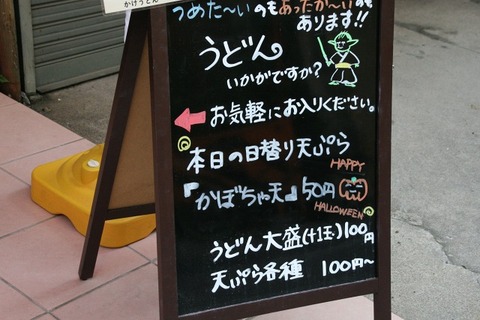 かけうどん
つめた〜いのもあったか〜いのも
あります!!
うどん
いかがですか?
お気軽にお入りください。
本日の日替り天ぷら
HAPPY
『かぼちゃ天』50円
HALLOWEEN
うどん大盛(+1玉)100円
天ぷら各種 100円〜